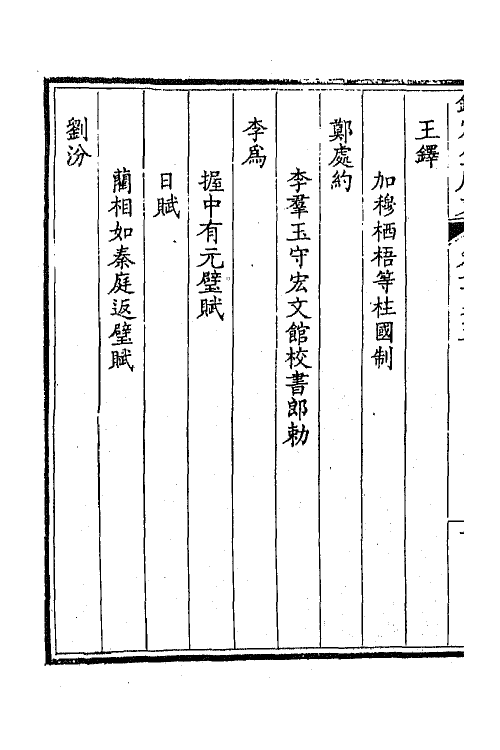 王鐸
加穆栖梧等柱國制
鄭處約
李羣玉守宏文館校書郎勅
李為
握中有元璧賦
日賦
藺相如秦庭返璧賦
劉汾